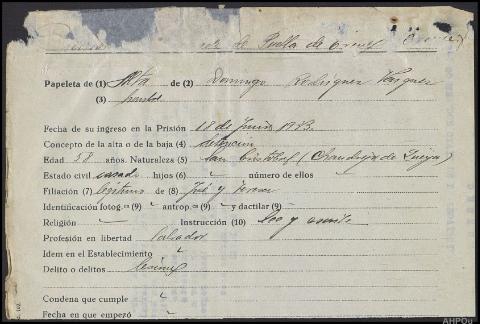 de Puebla de
Papeleta de (1) Alta de (2) Domingo Rodriguez Vazquez
(3)
Fecha de su ingreso en la Prisión 18 de Junio 1943.
Concepto de la alta o de la baja (4) detención
Edad 58 años. Naturaleza (5) San Cristobal (Chandreja de Queija)
Estado civil casado hijos (6) número de ellos
Filiación (7) legitimo de (8) José y Teresa
Identificación fotog.ca (9) antrop.ca (9) y dactilar (9)
Religión Instrucción (10) lee y escribe
Profesión en libertad Labrador
Idem en el Establecimiento
Delito o delitos
Condena que cumple
Fecha en que empezó
AHPOu